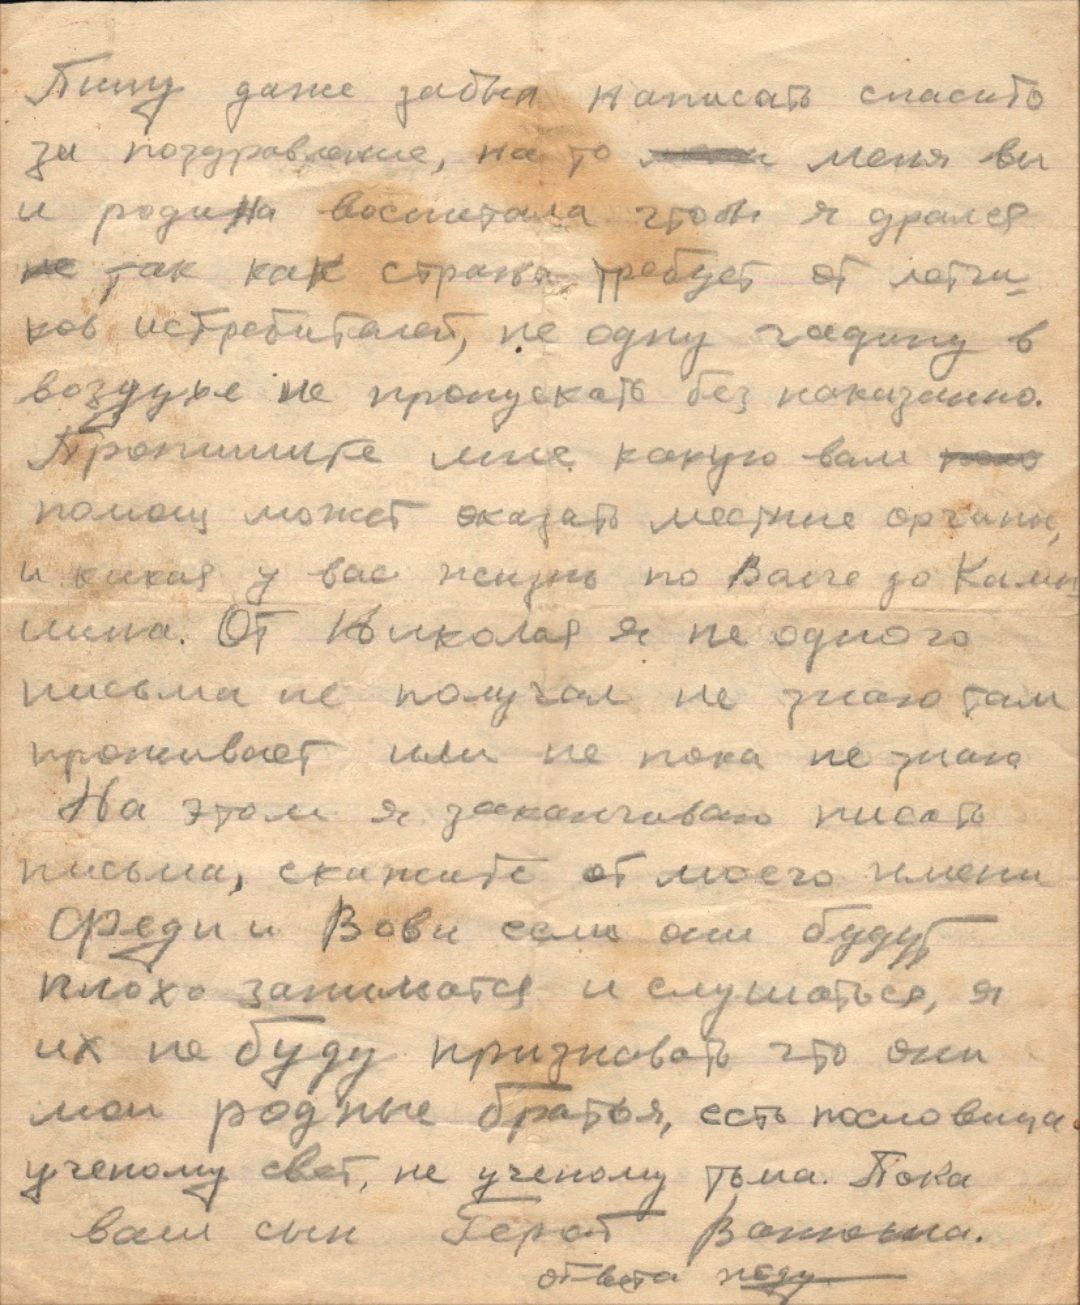 Пишу даже забыл написать спасибо
за поздравление, на то меня вы
и родина воспитала чтобы я дрался
не так как страна требует от летчи-
ков истребителей, не одну гадину в
воздухе не пропускать без наказанно.
Пропишите мне какую вам
помощ может оказать местные органы,
и какая у вас жизнь по Волге до Камы
шина. От Николая я не одного
письма не получал не знаю там
проживает или не пока не знаю
На этом я заканчиваю писать
письма, скажите от моего имени
Феди и Вови если они будут
плохо заниматся и слушаться, я
их не буду признавать что они
мои родные братья, есть пословица
ученому свет, не ученому тьма. Пока
ваш сын Герой Ванюшка.
ответа жду